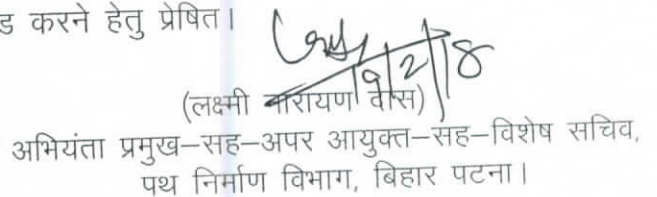 ड करने हेतु प्रेषित।
9/2/18
(लक्ष्मी नारायण दास)
अभियंता प्रमुख–सह–अपर आयुक्त–सह–विशेष सचिव,
पथ निर्माण विभाग, बिहार पटना।